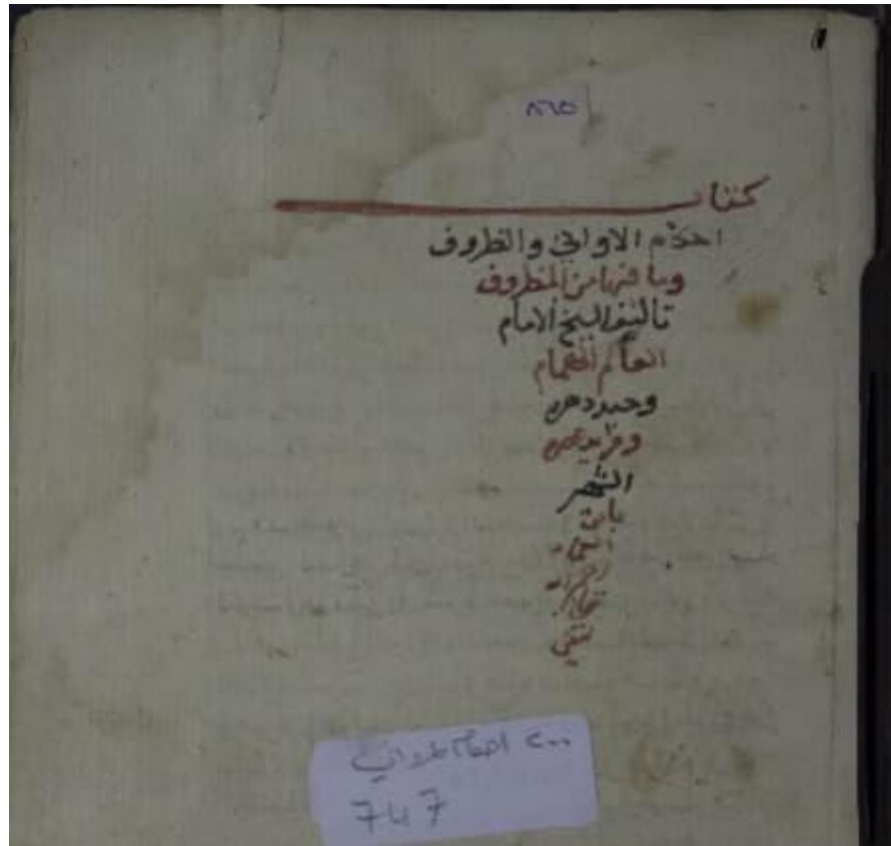 كتاب
احكام الاواني والظروف
وما فيها من المظروف
تاليف الشيخ الامام
العالم الهمام
وحيد دهره
وفريد عصره
الشهير
بابن
٢٠٠ احكام الاواني
747